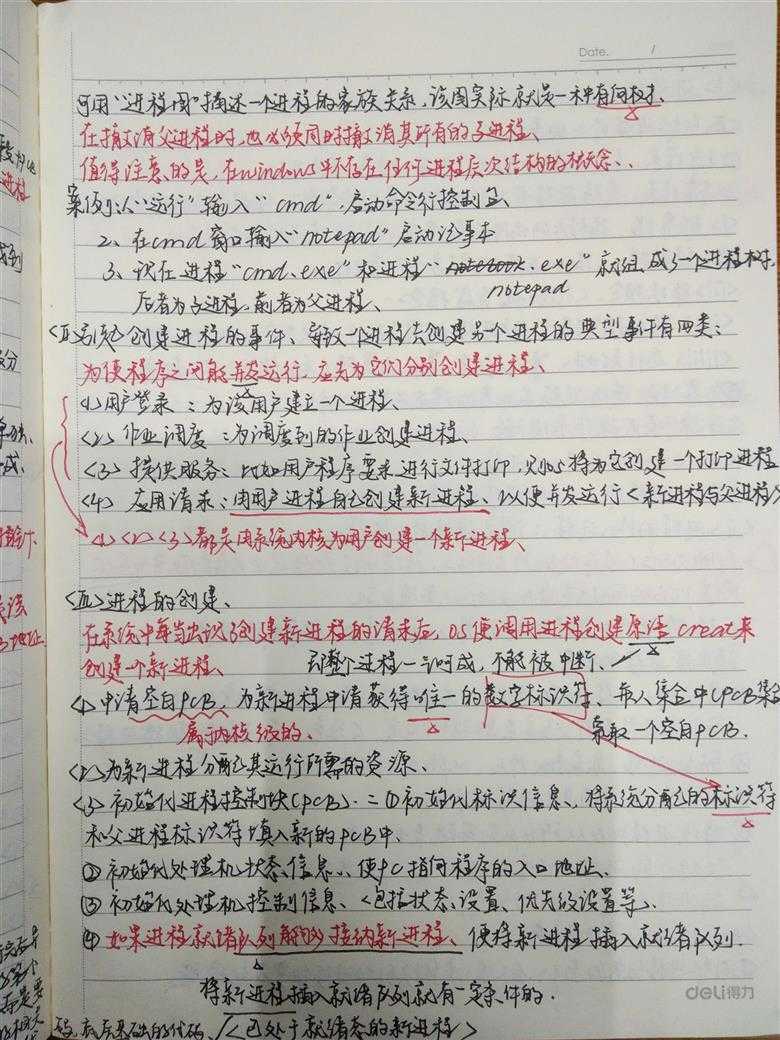 Date. /
可用"进程图"描述一个进程的家族关系,该图实际就是一种有向树.
在撤消父进程时,也必须同时撤消其所有的子进程、
值得注意的是,在windows中不存在任何进程层次结构的概念、、
案例以"运行"输入"cmd",启动命令行控制台
2、在cmd窗口输入"notepad"启动记事本
3、现在进程"cmd.exe"和进程"notebook.exe"就组成了一个进程树,
notepad
后者为子进程,前者为父进程、
创建进程的事件、导致一个进程去创建另一个进程的典型事件有四类:
为使程序之间能并发运行,应先为它们分别创建进程、
<1>用户登录:为该用户建立一个进程、
<2>作业调度:为调度到的作业创建进程、
<3>提供服务:比如用户程序要求进行文件打印,则OS将为它创建一个打印进程
<4>应用请求:由用户进程自己创建新进程、以便并发运行<新进程与父进程>
<1><2><3>都是由系统内核为用户创建一个新进程、
<三>进程的创建、
在系统中每当出现了创建新进程的请求后,OS便调用进程创建原语creat来
创建一个新进程、 即整个过程一气呵成,不能被中断、
<1>申请空白PCB,为新进程申请获得唯一的数字标识符、并从集合中(PCB集合
属于内核级的、 索取一个空白PCB.
<2>为新进程分配其运行所需的资源、
<3>初始化进程控制块(PCB).=①初始化标识信息、将系统分配的标识符
和父进程标识符填入新的PCB中.
②初始化处理机状态信息、、使PC指向程序的入口地址.
③初始化处理机控制信息、<包括状态、设置、优先级设置等>、
④如果进程就绪队列能够接纳新进程、便将新进程插入就绪者队列.
将新进程插入就绪队列就有一定条件的.
<已处于就绪态的新进程>
deli得力